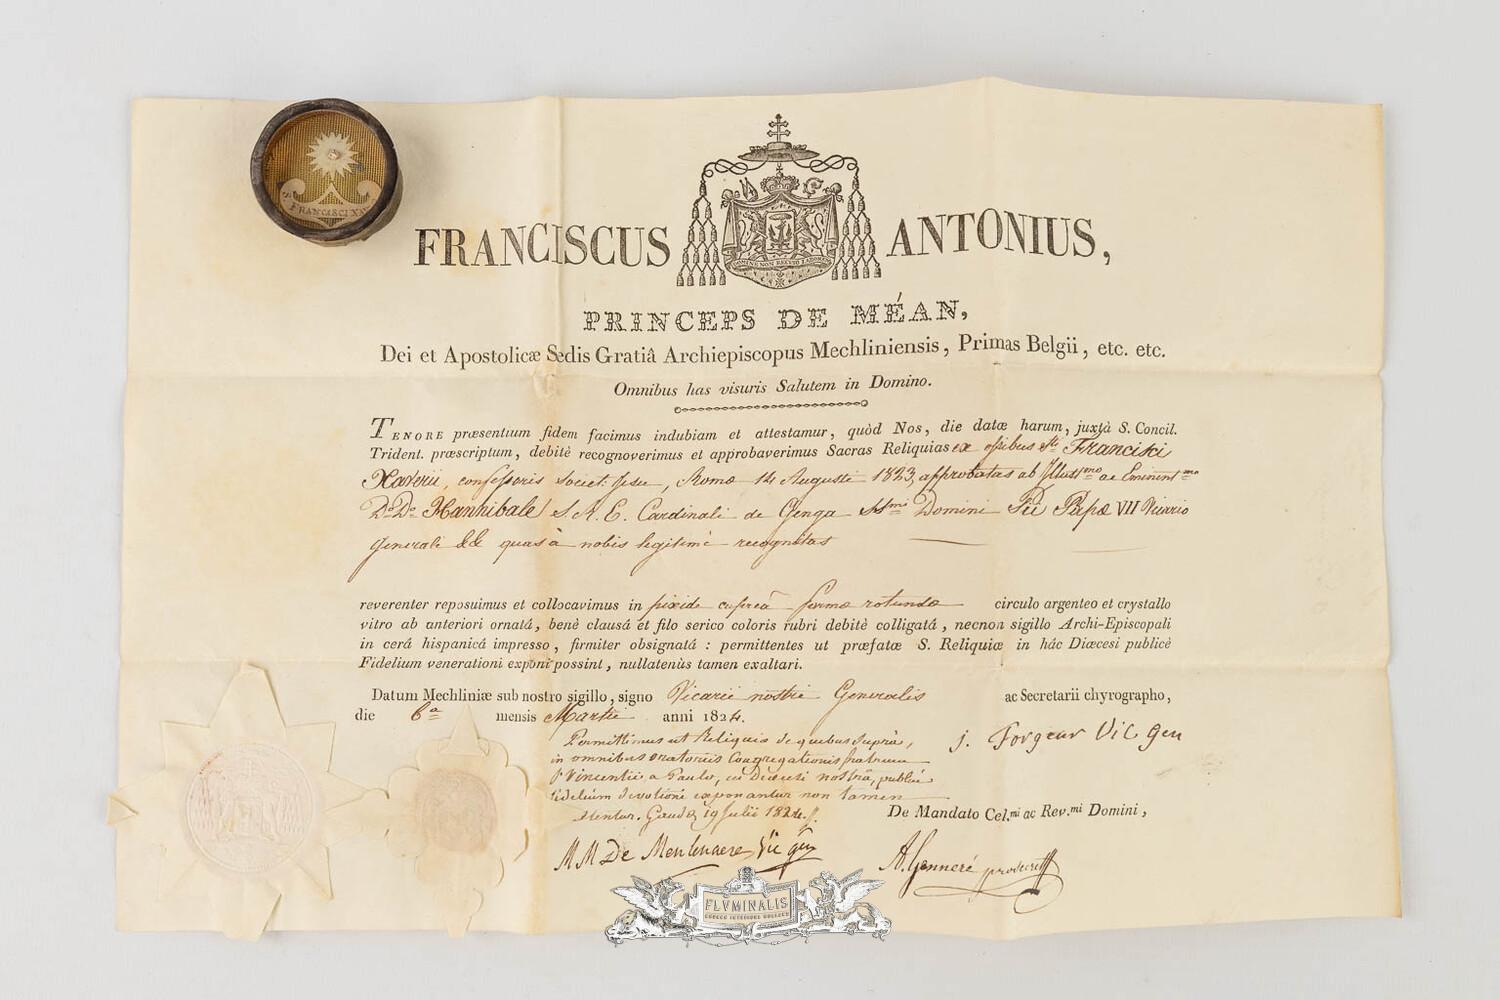 S. FRANCISCI XAV
FRANCISCUS ANTONIUS,
DOMINE NON RECUSO LABOREM
PRINCEPS DE MÉAN,
Dei et Apostolicæ Sedis Gratiâ Archiepiscopus Mechliniensis, Primas Belgii, etc. etc.
Omnibus has visuris Salutem in Domino.
TENORE præsentium fidem facimus indubiam et attestamur, quòd Nos, die datæ harum, juxtà S. Concil.
Trident. præscriptum, debitè recognoverimus et approbaverimus Sacras Reliquias ex ossibus Sti Francisci
Xaverii, confessoris Societ: Jesu, Romæ 14 Augusti 1823 approbatas ab Illustmo ac Eminentmo
Do Do Hannibale S. R. E. Cardinali de Genga SSmi Domini Pii Papæ VII Vicario
generali && quas à nobis legitimè recognitas
reverenter reposuimus et collocavimus in pixide cupreâ formæ rotundæ circulo argenteo et crystallo
vitro ab anteriori ornatá, benè clausá et filo serico coloris rubri debitè colligatá, necnon sigillo Archi-Episcopali
in cerá hispanicá impresso, firmiter obsignatá : permittentes ut præfatæ S. Reliquiæ in hác Diœcesi publicè
Fidelium venerationi exponi possint, nullatenùs tamen exaltari.
Datum Mechliniæ sub nostro sigillo, signo Vicarii nostri Generalis ac Secretarii chyrographo,
die 6a mensis Martii anni 1824.
Permittimus ut Reliquiæ de quibus suprà,
in omnibus oratoriis Congregationis fratrum
S Vincentii a Paulo, in Diœcesi nostrâ, publicè
fidelium devotioni exponantur non tamen
Gandæ 19 Julii 1824.
J. Forgeur Vic Gen
De Mandato Cel.mi ac Rev.mi Domini,
MM De Meulenaere Vic gen
A. Genneré prosecret
FLVMINALIS